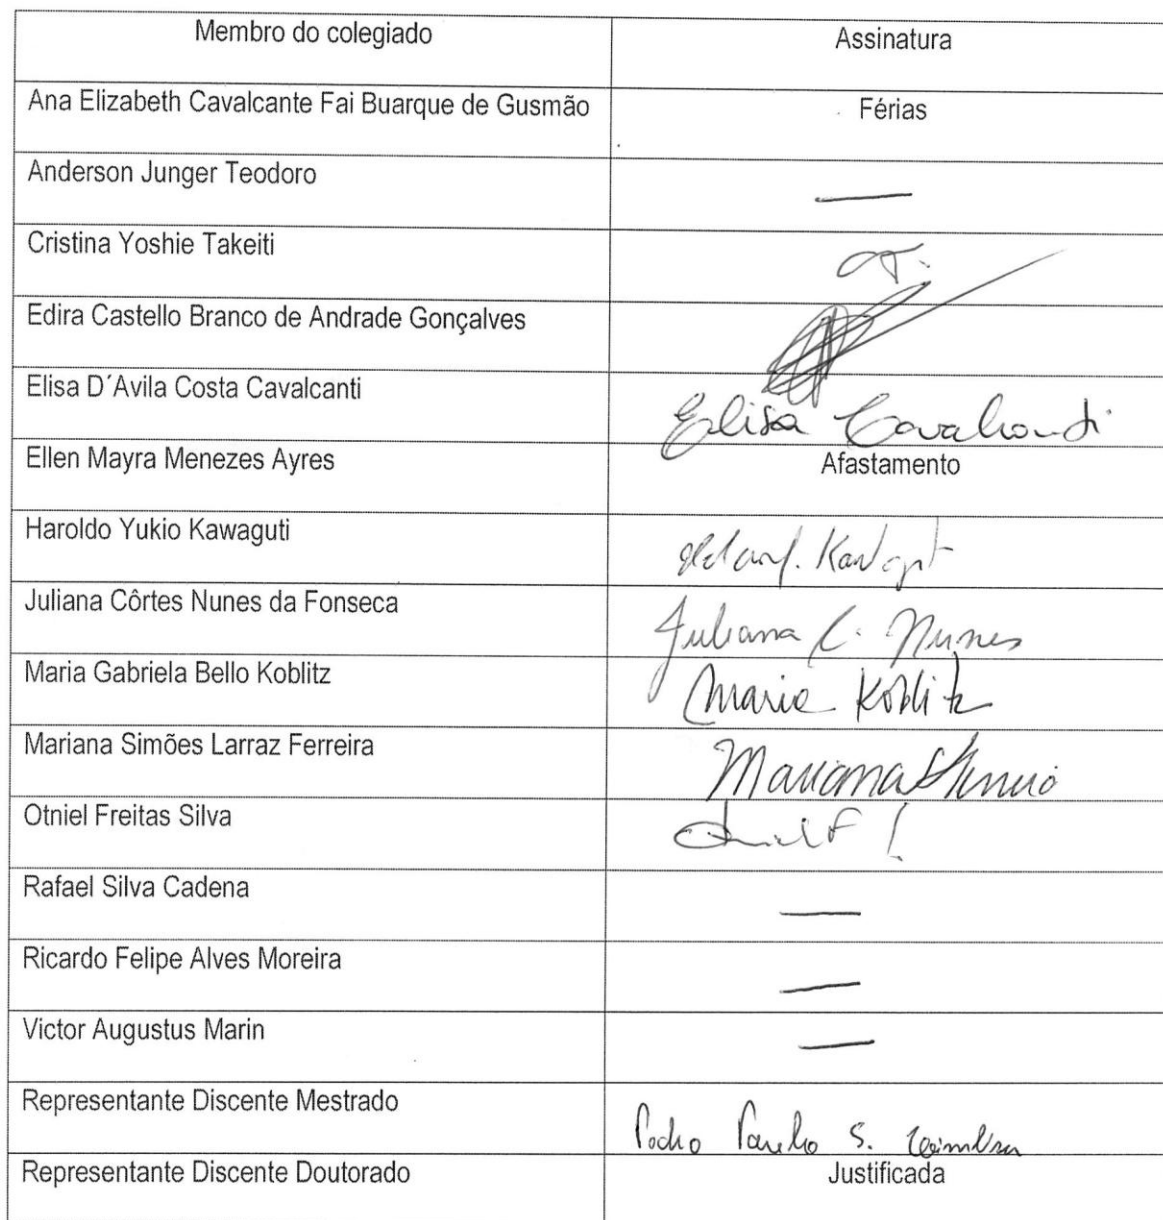 Membro do colegiado Assinatura
Ana Elizabeth Cavalcante Fai Buarque de Gusmão Férias
Anderson Junger Teodoro —
Cristina Yoshie Takeiti
Edira Castello Branco de Andrade Gonçalves
Elisa D´Avila Costa Cavalcanti Elisa Cavalcanti
Ellen Mayra Menezes Ayres Afastamento
Haroldo Yukio Kawaguti
Juliana Côrtes Nunes da Fonseca Juliana C. Nunes
Maria Gabriela Bello Koblitz Maria Koblitz
Mariana Simões Larraz Ferreira Mariana
Otniel Freitas Silva
Rafael Silva Cadena —
Ricardo Felipe Alves Moreira —
Victor Augustus Marin —
Representante Discente Mestrado S.
Representante Discente Doutorado Justificada